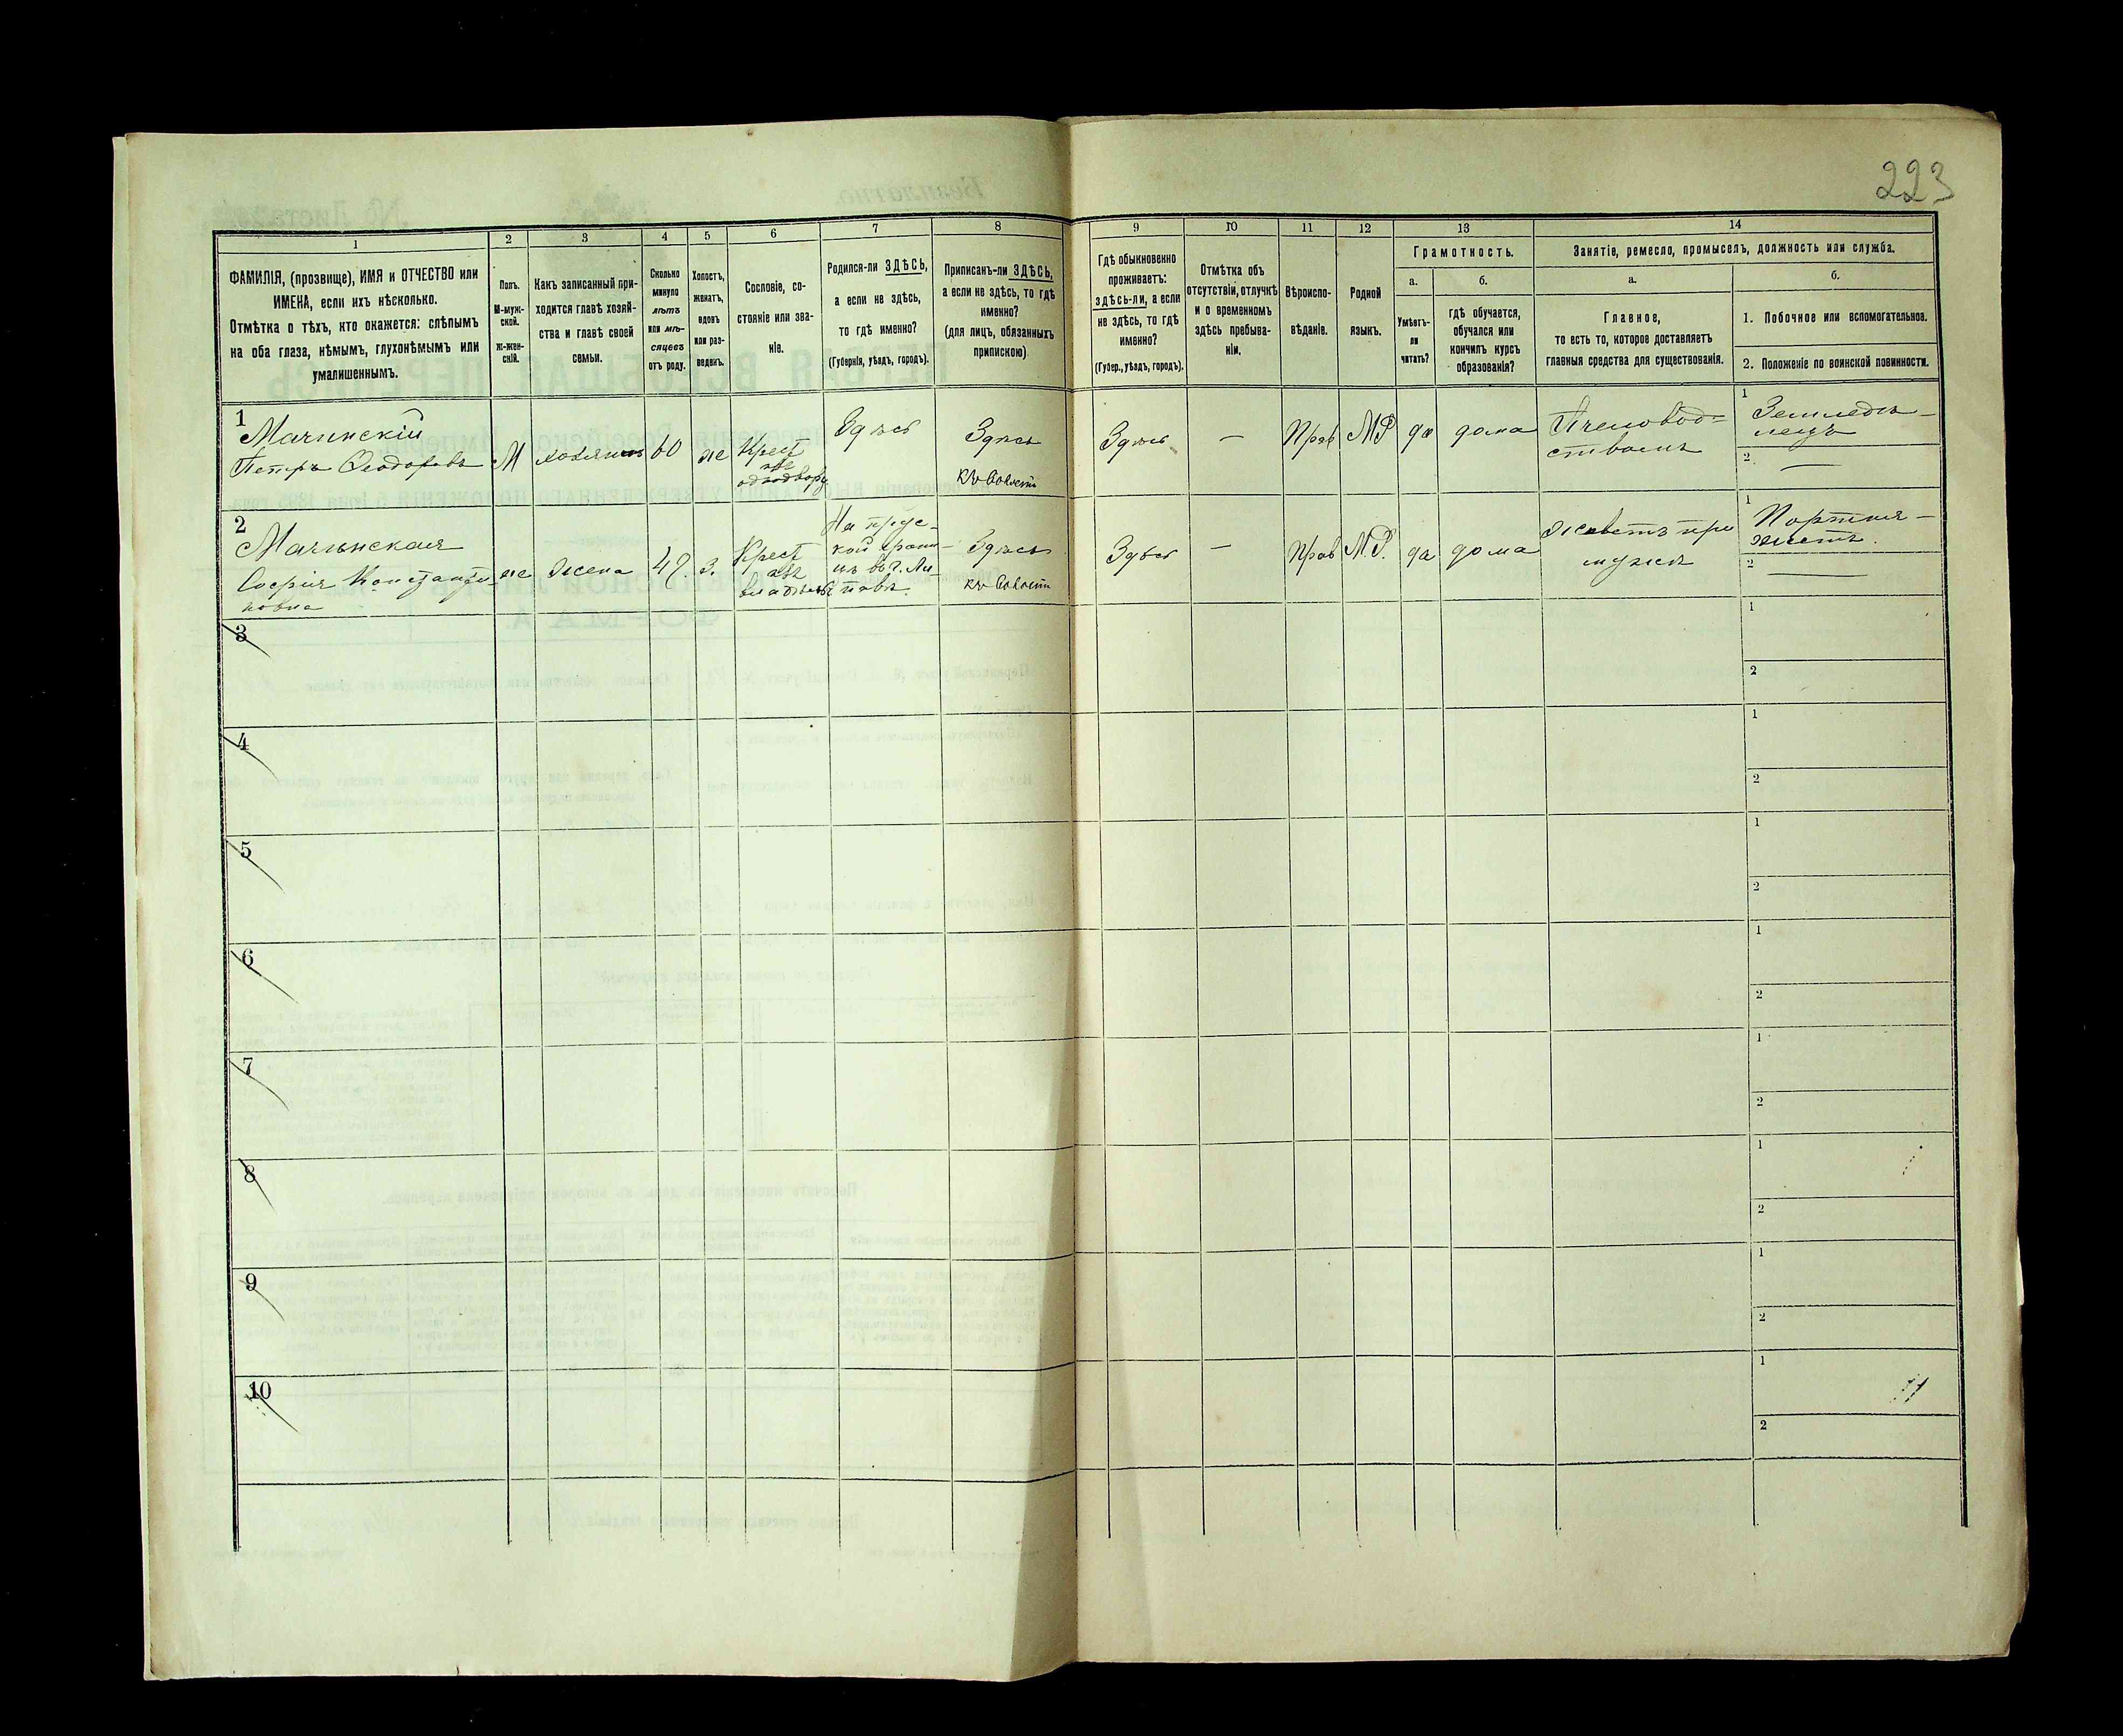 223
1
2
3
4
5
6
7
8
9
10
11
12
13
14
ФАМИЛІЯ, (прозвище), ИМЯ и ОТЧЕСТВО или
ИМЕНА, если ихъ нѣсколько.
Отмѣтка о тѣхъ, кто окажется: слѣпымъ
на оба глаза, нѣмымъ, глухонѣмымъ или
умалишеннымъ.
Полъ.
М-муж-
ской.
Ж-жен-
скій.
Какъ записанный при-
ходится главѣ хозяй-
ства и главѣ своей
семьи.
Сколько
минуло
лѣтъ
или мѣ-
сяцевъ
отъ роду.
Холостъ,
женатъ,
вдовъ
или раз-
веденъ.
Сословіе, со-
стояніе или зва-
ніе.
Родился-ли ЗДѢСЬ,
а если не здѣсь,
то гдѣ именно?
(Губернія, уѣздъ, городъ).
Приписанъ-ли ЗДѢСЬ,
а если не здѣсь, то гдѣ
именно?
(для лицъ, обязанныхъ
припискою)
Гдѣ обыкновенно
проживаетъ:
здѣсь-ли, а если
не здѣсь, то гдѣ
именно?
(Губер., уѣздъ, городъ).
Отмѣтка объ
отсутствіи, отлучкѣ
и о временномъ
здѣсь пребыва-
ніи.
Вѣроиспо-
вѣданіе.
Родной
языкъ.
Грамотность.
а.
Умѣетъ-
ли
читать?
б.
гдѣ обучается,
обучался или
кончилъ курсъ
образованія?
Занятіе, ремесло, промыселъ, должность или служба.
а.
Главное,
то есть то, которое доставляетъ
главныя средства для существованія.
б.
1. Побочное или вспомогательное.
2. Положеніе по воинской повинности.
1
Мачинскій
Петръ Ѳеодоровъ
М
хозяинъ
60
же
Крест
Здѣсь
Здѣсь
Здѣсь
—
Прав
МР
да
дома
Пчеловод=
ствомъ
1
Земледѣ-
лецъ
2
—
2
Мачинская
Софія Константи-
новна
же
жена
47
з.
Крест
Здѣсь
Здѣсь
—
Прав
МР.
да
дома
Живетъ при
мужѣ
1
2
—
3
1
2
4
1
2
5
1
2
6
1
2
7
1
2
8
1
2
9
1
2
10
1
2